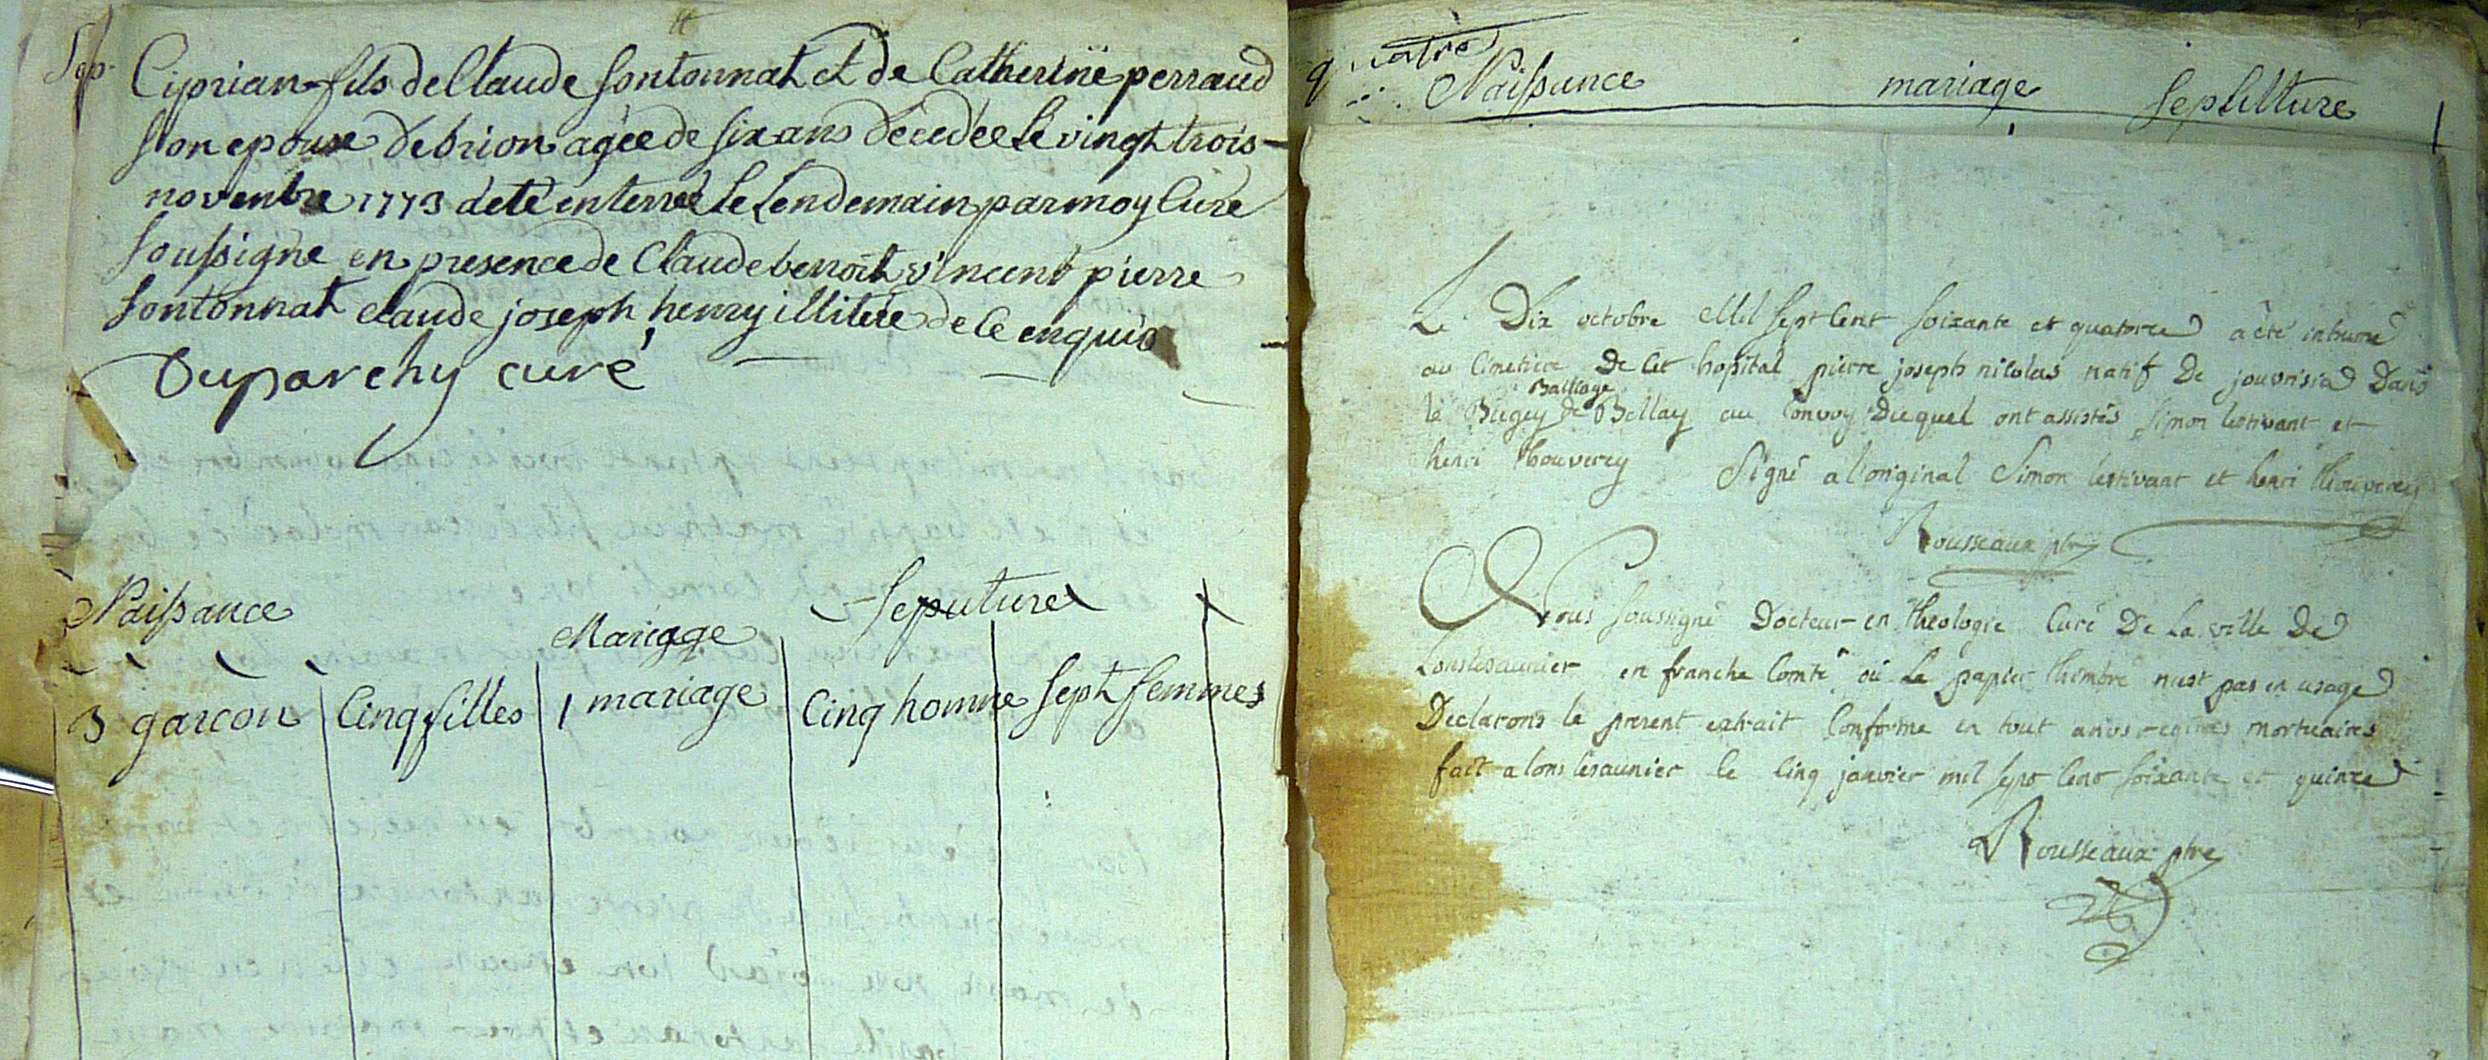 Sep.
Ciprian fils de Claude fontonnat et de Catherine perraud
son epouse de brion agée de six ans décedée le vingt trois
novembre 1773 a eté enterré le Lendemain par moy Curé
soussigné en presence de Claude benoit vincent pierre
fontonnat claude joseph henry illiteré de ce enquis
Duparchy curé
Naissance
Mariage
Seputure
3 garcon Cinq filles 1 mariage Cinq homme sept femmes
quatre
Naissance mariage Seplulture
Le Dix octobre Mil sept Cent soixante et quatorze a été inhumé
au Cimetiere De Cet hopital pierre joseph nicolas natif De jouvrisia Dans
Bailiage
le Bugey de Bellay au Convoy Duquel ont assistés simon lestivant et
henri thouverey Signé a l'original Simon lestivant et henri thouverey
Rousseaux ptre
Nous soussigné Docteur en theologie Curé De La ville De
Lonslesaunier en franche Comté ou Le papier thimbré nest pas en usage
Declarons le present extrait Conforme en tout a nos registres mortuaires
fait a lons lesaunier le Cinq janvier mil sept Cent soixante et quinze
Rousseaux ptre